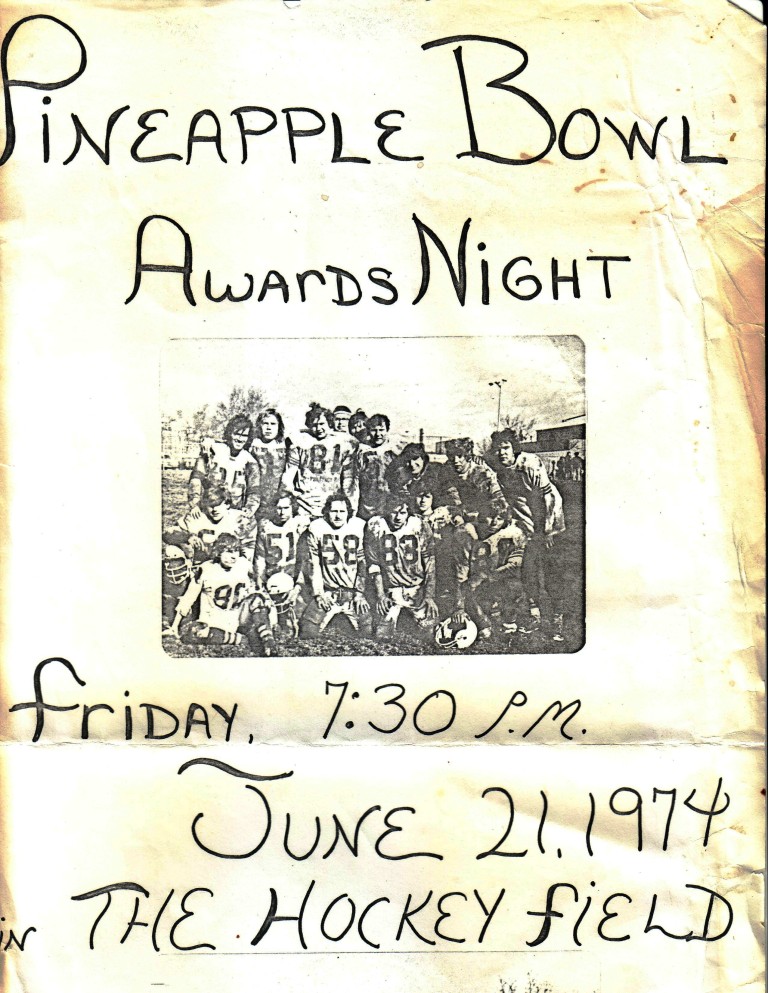 PINEAPPLE BOWL
AWARDS NIGHT
81
51
58
83
friDAY, 7:30 P.M.
JUNE 21, 1974
iN THE HOCKEY fiELD